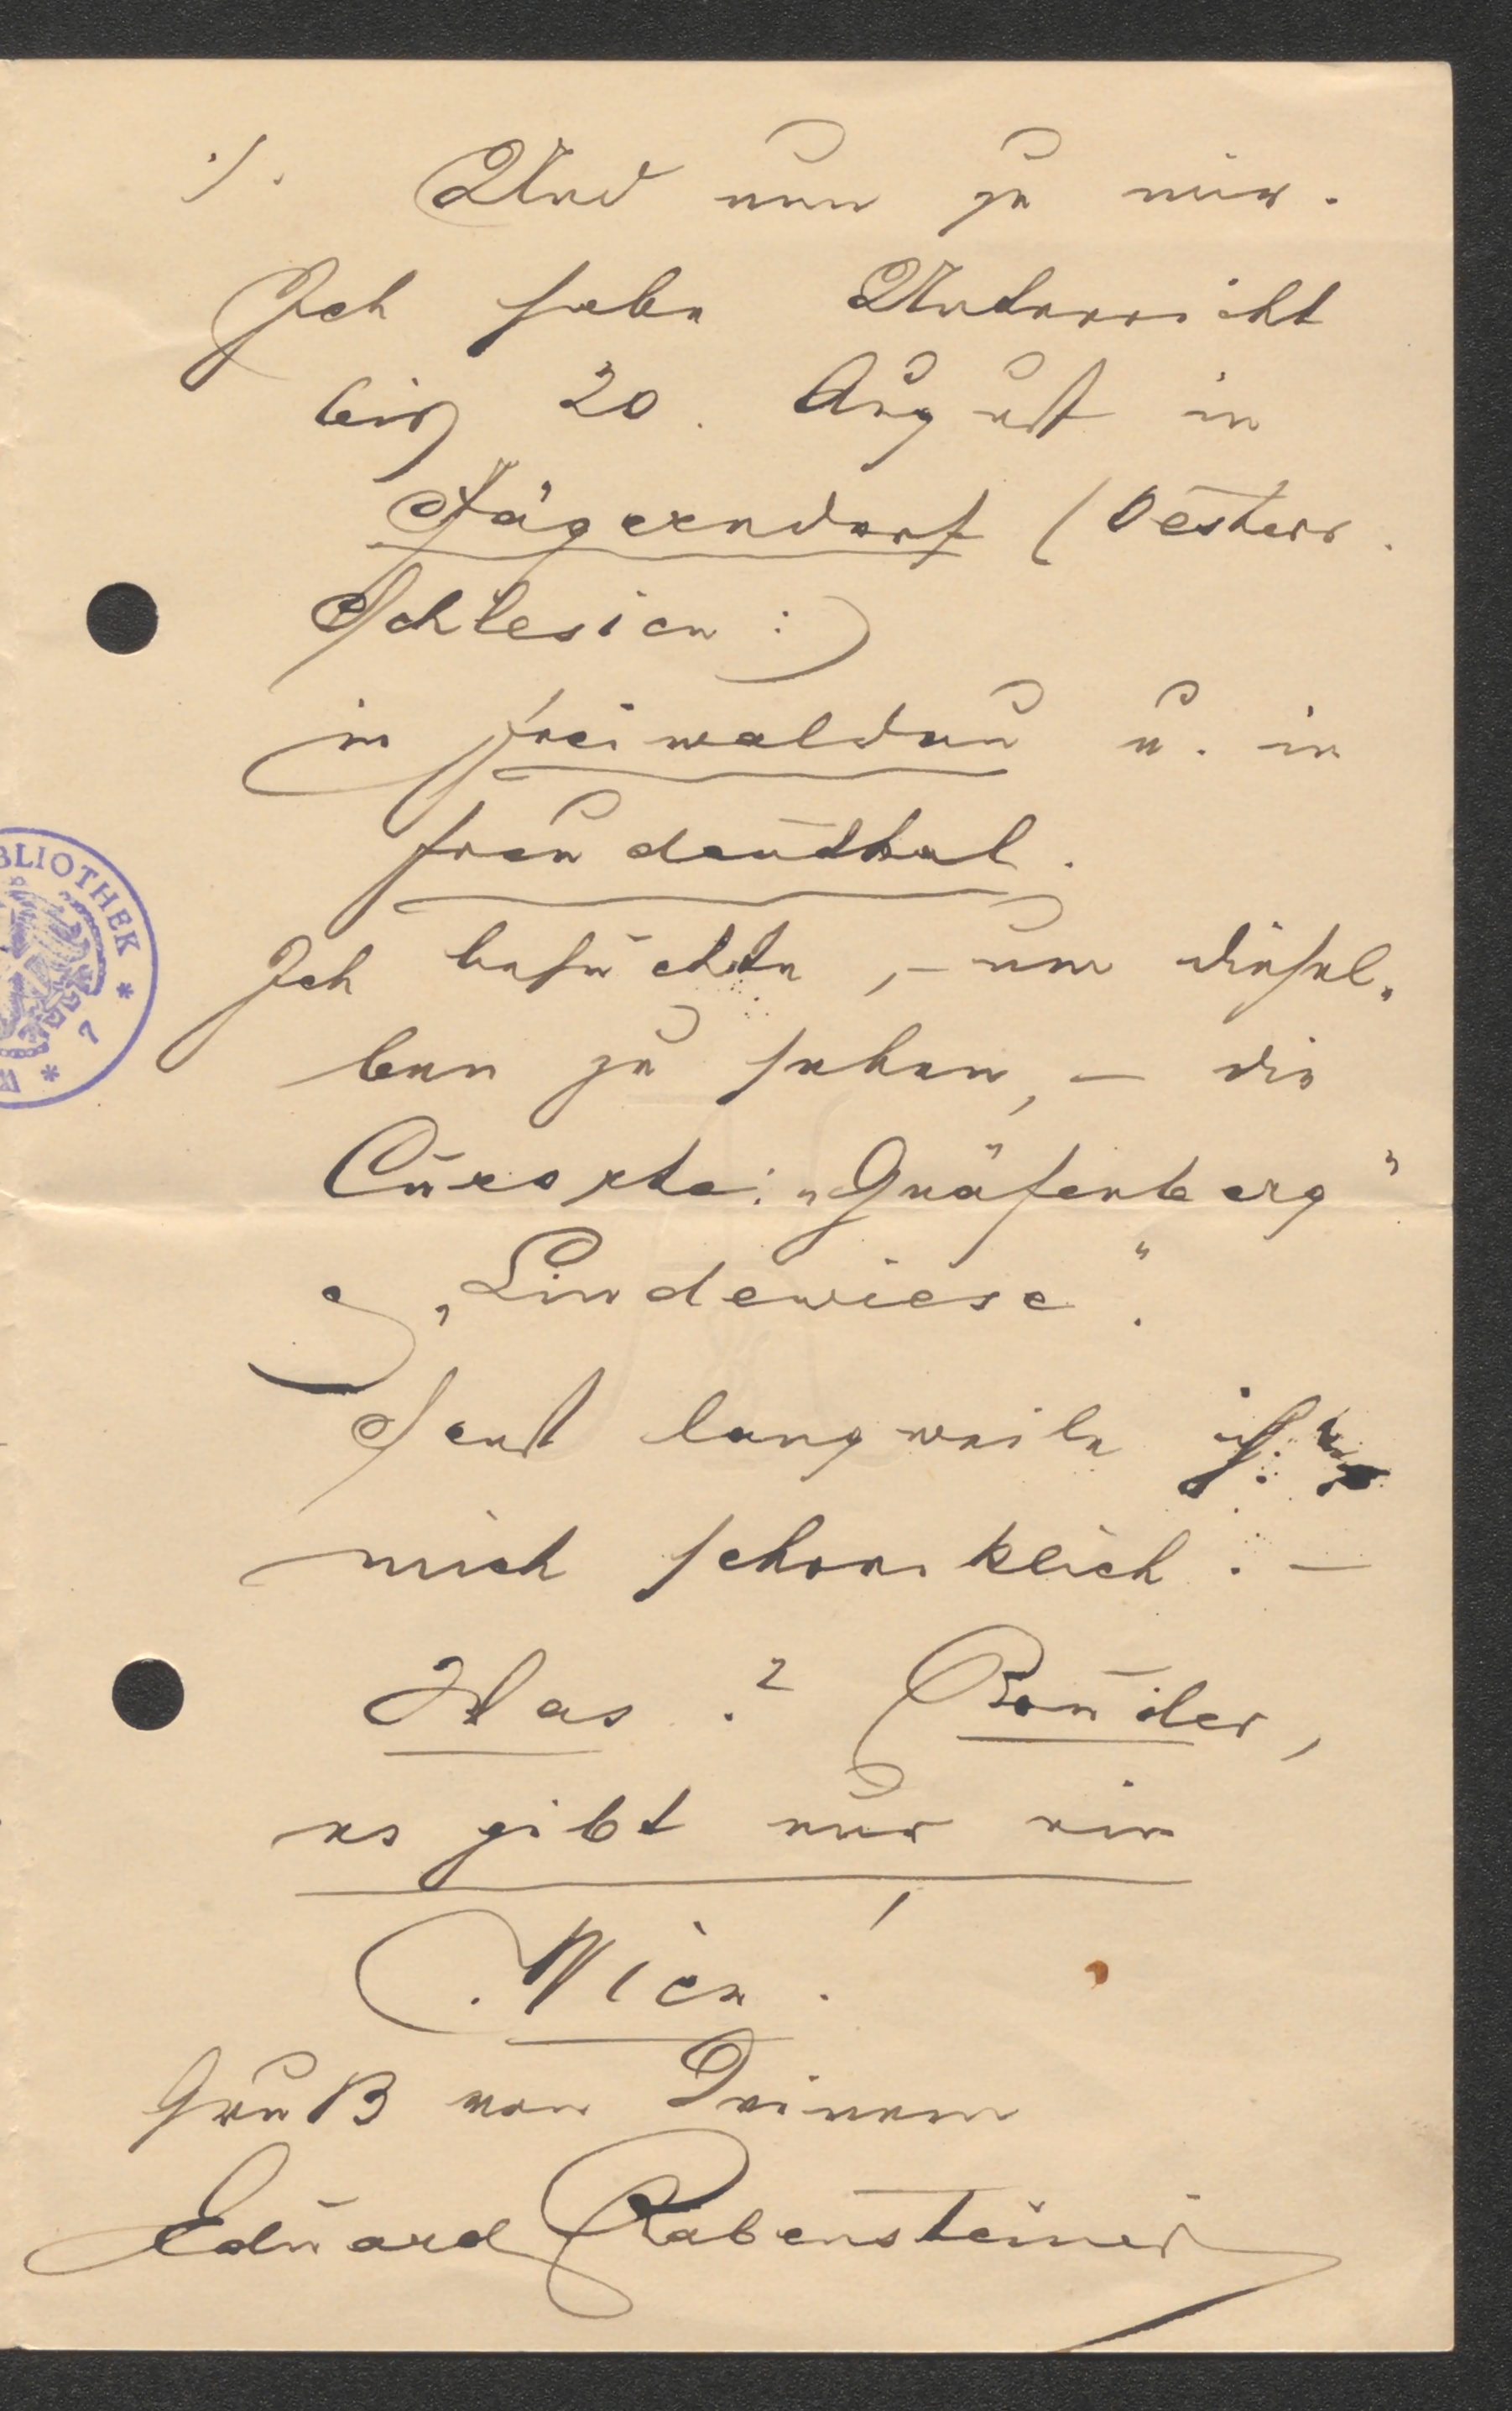 ./. Und nun zu mir.
Ich habe Unterricht
bis 20. August in
Jägerndorf (Oesterr.
Schlesien :)
in Freiwaldau u. in
Freudenthal.
Ich besuchte, – um diesel„
ben zu sehen, – die
Curorte: „Gräfenberg"
„Lindewiese".
Sonst langweile ich
mich schrecklich. –
Was? Bruder,
es gibt nur ein
Wien!
Gruß von Deinem
Eduard Rabensteiner
BLIOTHEK * 7 * W